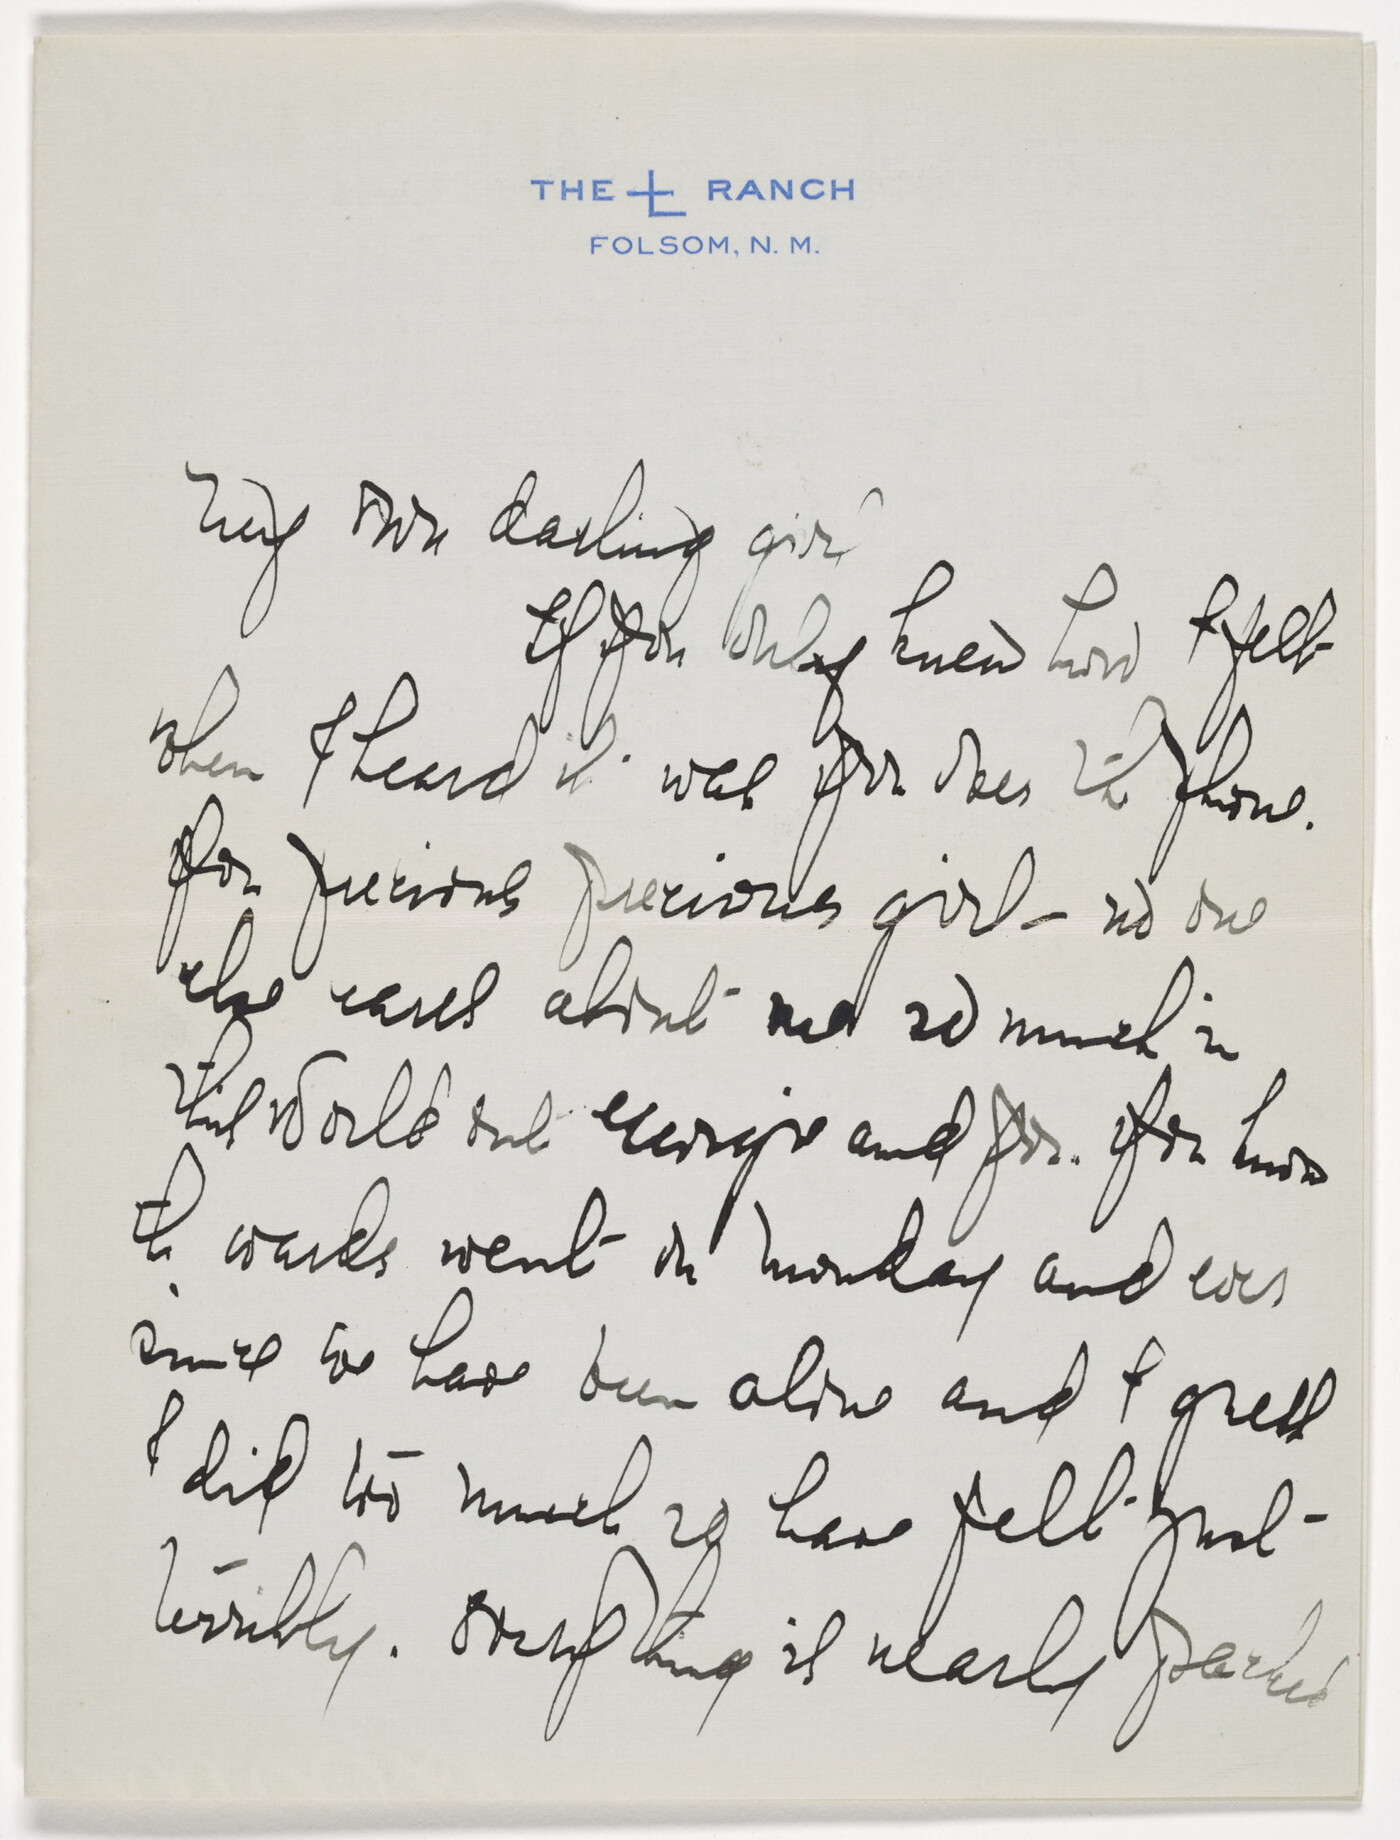 THE L RANCH
FOLSOM, N. M.
My own darling girl
If you only knew how I felt
when I heard it was you over the phone.
You precious precious girl – no one
else cares about me so much in
this world but George and you. You know
the wards went on Monday and ever
since we have been alone and I guess
I did too much so have felt just
terribly. Everything is nearly packed